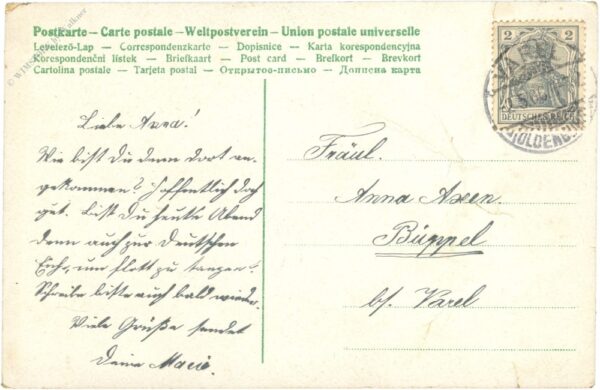 Postkarte – Carte postale – Weltpostverein – Union postale universelle
Levelező-Lap — Correspondenzkarte — Dopisnice — Karta korespondencyjna
Korespondenční lístek — Briefkaart — Post card — Brefkort — Brevkort
Cartolina postale — Tarjeta postal — Открытое-письмо — Дописна карта
2 2
DEUTSCHES REICH
(OLDENBURG)
Liebe Anna!
Wie bist Du denn dort an-
gekommen? Hoffentlich doch
gut. Bist Du heute Abend
denn auch zur Deutschen
Eich, um flott zu tanzen?
Schreibe bitte auch bald wieder.
Viele Grüße sendet
Deine Marie.
Fräul.
Anna Axen
Büppel
bs. Varel